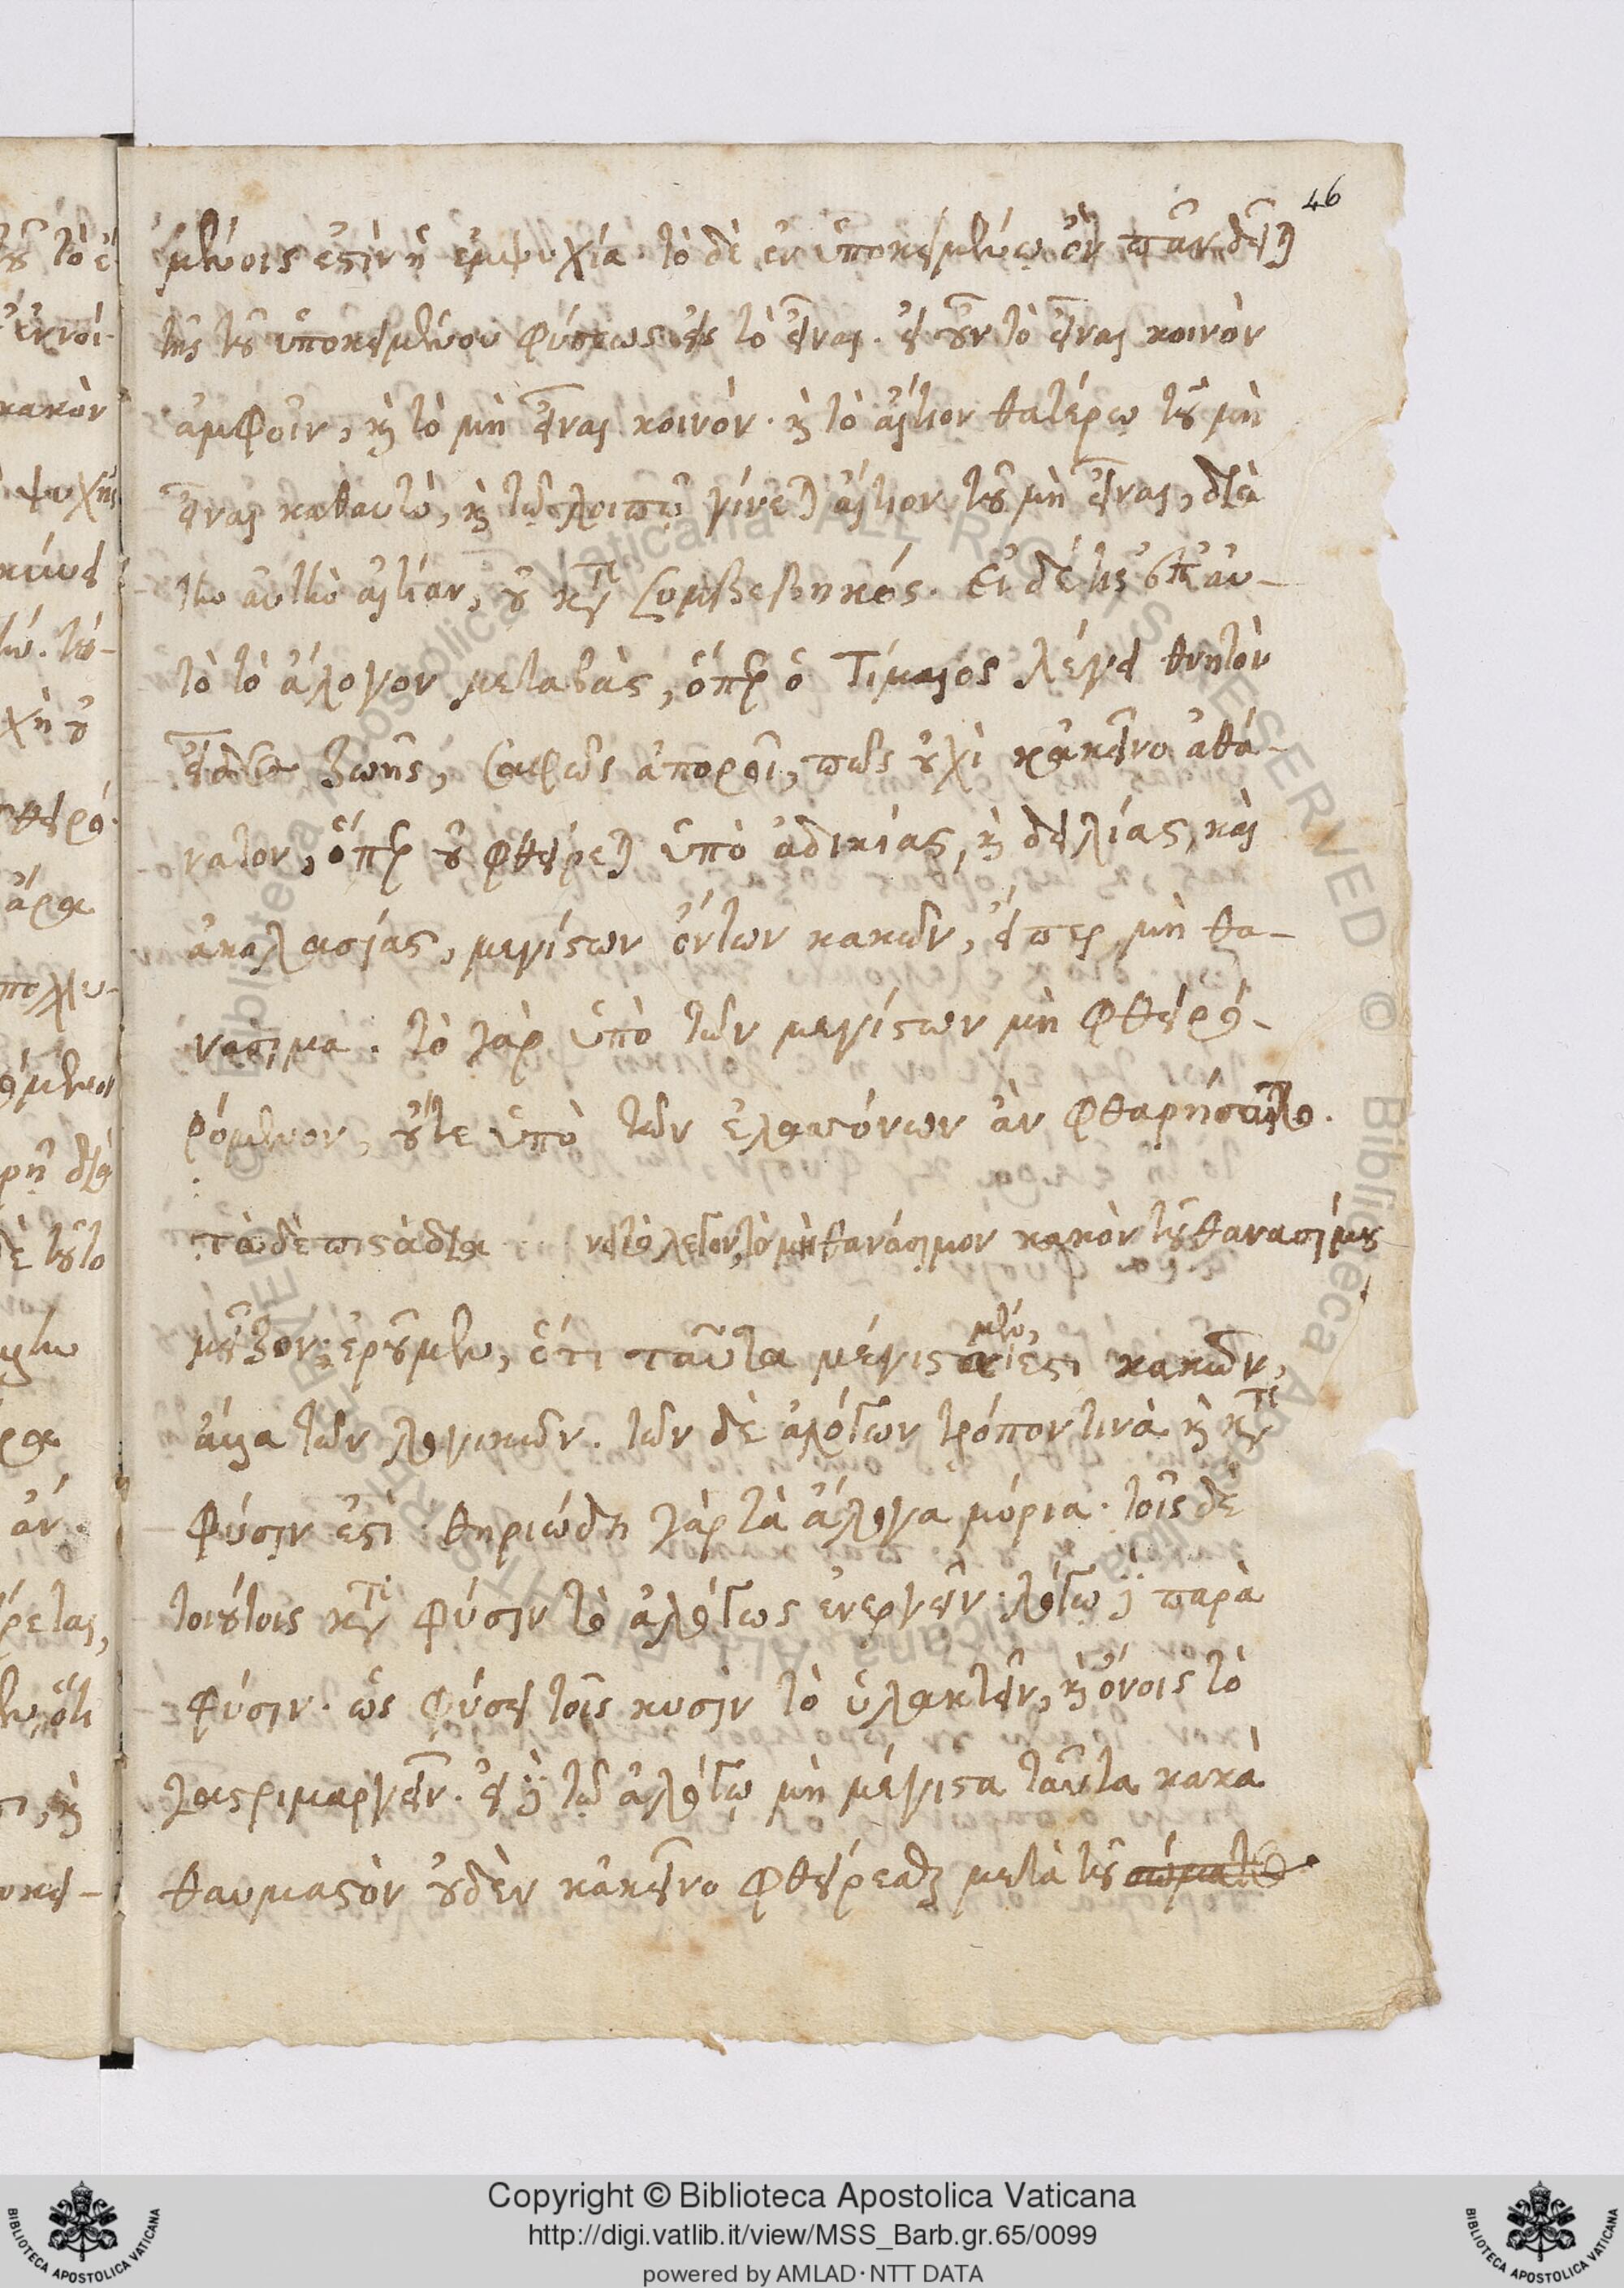 46
μένοις ἐστὶν ἡ ἐμψυχία· τὸ δὲ ἐν ὑποκειμένῳ ὂν πᾶν δεῖται
τῆς τοῦ ὑποκειμένου φύσεως εἰς τὸ εἶναι. εἰ οὖν τὸ εἶναι κοινὸν
ἀμφοῖν, καὶ τὸ μὴ εἶναι κοινόν. καὶ τὸ αἴτιον θατέρῳ τοῦ μὴ
εἶναι καθαυτὸ, καὶ τῷ λοιπῷ γίνεται αἴτιον τοῦ μὴ εἶναι, διὰ
τὴν αὐτὴν αἰτίαν, οὐ κατὰ συμβεβηκός. εἰ δέ τις ἐπ' αὐ-
τὸ τὸ ἄλογον μεταβὰς, ὅπερ ὁ Τίμαιος λέγει θνητὸν
εἶδος ζωῆς, σαφῶς ἀποροῖ, πῶς οὐχὶ κἀκεῖνο ἀθά-
νατον, ὅπερ οὐ φθείρεται ὑπὸ ἀδικίας, καὶ δειλίας, καὶ
ἀκολασίας, μεγίστων ὄντων κακῶν, εἴπερ μὴ θα-
νάσιμα. τὸ γὰρ ὑπὸ τῶν μεγίστων μὴ φθειρό-
ρόμενον, οὔτε ὑπὸ τῶν ἐλαττόνων ἂν φθαρήσοιτο.
τὸ μὴ θανάσιμον κακὸν τοῦ θανασίμου
μεῖζον· ἐροῦμεν, ὅτι ταῦτα μέγιστα μέν, ἐστι κακῶν,
ἀλλὰ τῶν λογικῶν. τῶν δὲ ἀλόγων τρόπον τινὰ καὶ κατὰ
φύσιν ἐστὶ· θηριώδη γὰρ τὰ ἄλογα μόρια· τοῖς δὲ
τοιούτοις κατὰ φύσιν τὸ ἀλόγως ἐνεργεῖν· λόγῳ δὲ παρὰ
φύσιν. ὡς φύσει τοῖς κυσὶν τὸ ὑλακτεῖν, καὶ ὄνοις τὸ
γαστριμαργεῖν. εἰ δὲ τῷ ἀλόγῳ μὴ μέγιστα ταῦτα κακὰ
θαυμαστὸν οὐδὲν κἀκεῖνο φθείρεσθαι μετὰ τοῦ σώματος
Copyright © Biblioteca Apostolica Vaticana
http://digi.vatlib.it/view/MSS_Barb.gr.65/0099
powered by AMLAD·NTT DATA
BIBLIOTECA APOSTOLICA VATICANA
BIBLIOTECA APOSTOLICA VATICANA